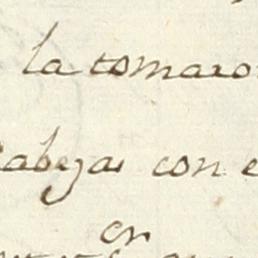 la tomaro
Cabezas con e
en